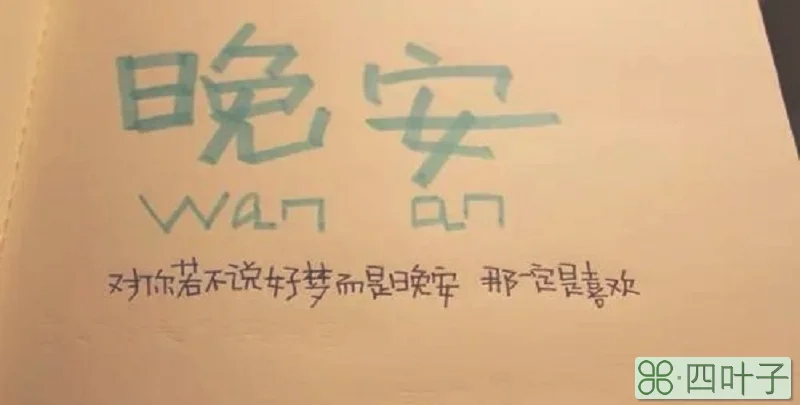 晚安
wan an
对你若不说好梦而是晚安 那一定是喜欢
四叶子